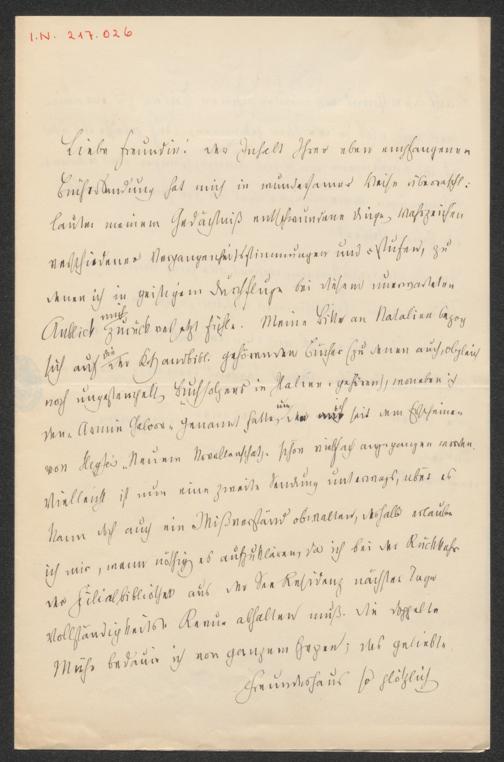 I.N. 217.026
Liebe Freundin! Der Inhalt Ihrer eben empfangenen
Büchersendung hat mich in wundersamer Weise überrascht:
lauter meinem Gedächtniß entschwundene Dinge, Wahrzeichen
verschiedener Vergangenheitsstimmungen und -Stufen, zu
denen ich in geistigem Durchfluge bei diesem unerwarteten
Anblick mich zurückversetzt fühle. Meine Bitte an Natalien bezog
sich auf die der gehörenden Bücher (zu denen auch, obgleich
noch ungestempelt, Buchholzens in Italien gehören), woneben ich
den genannt hatte, um den seit dem Erscheinen
von Heyse's "Neuem Novellenschatz" schon vielfach angegangen worden.
Vielleicht ist nun eine zweite Sendung unterwegs, aber es
kann doch auch ein Mißverständ obwalten, deshalb erlaube
ich mir, wenn nöthig, es aufzuklären, da ich bei der Rückkehr
der Filialbibliothek aus der See Residenz nächster Tage
Vollständigkeits Revue abhalten muß. Die doppelte
Mühe bedaure ich von ganzem Herzen; das geliebte
Freundeshaus so plötzlich